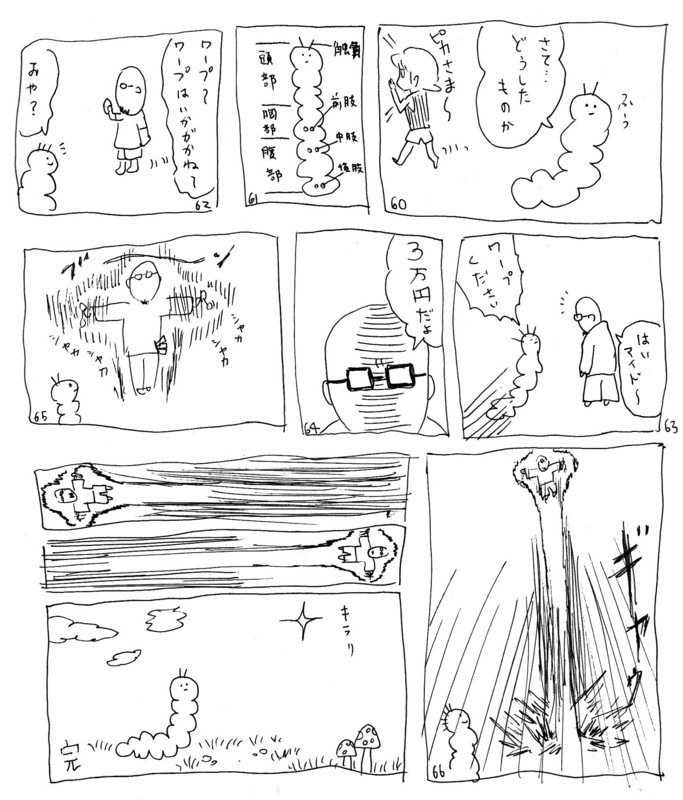 ふーっ
さて…
どうした
ものか
ピカさま〜
60
触角
頭部
前肢
胸部
中肢
腹部
後肢
61
ワープ〜
ワープはいかがかね〜
おや?
62
はい
マイド〜
ワープ
ください
63
3万円だよ
64
ブーン
シャカ
シャカ
シャカ
シャカ
65
66
キラリ
完